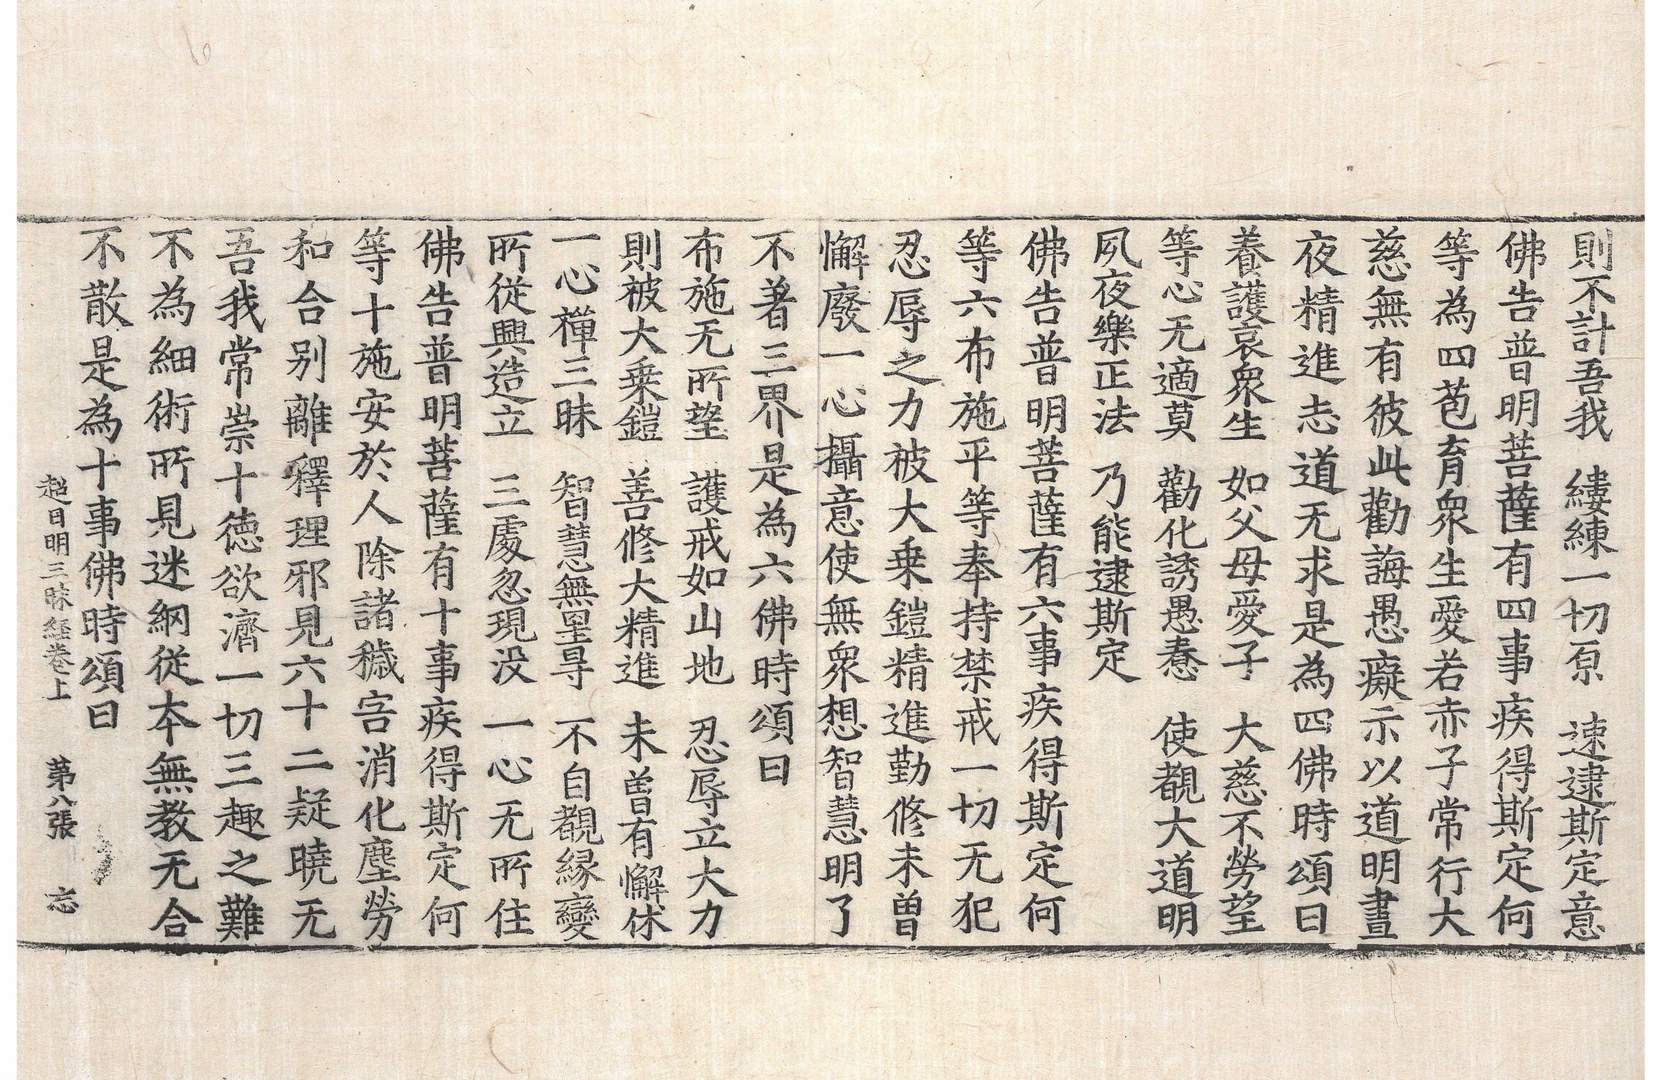 則不計吾我　縷練一切原　速逮斯定意
佛告普明菩薩有四事疾得斯定何
等為四苞育衆生愛若赤子常行大
慈無有彼此勸誨愚癡示以道明晝
夜精進志道无求是為四佛時頌曰
養護哀衆生　如父母愛子　大慈不勞望
等心无適莫　勸化誘愚惷　使覩大道明
夙夜樂正法　乃能逮斯定
佛告普明菩薩有六事疾得斯定何
等六布施平等奉持禁戒一切无犯
忍辱之力被大乗鎧精進勤修未曽
懈廢一心攝意使無衆想智慧明了
不著三界是為六佛時頌曰
布施无所望　護戒如山地　忍辱立大力
則被大乗鎧　善修大精進　未曽有懈休
一心禪三昧　智慧無罣㝵　不自覩縁變
所從興造立　三處忽現没　一心无所住
佛告普明菩薩有十事疾得斯定何
等十施安於人除諸穢害消化塵勞
和合别離釋理邪見六十二疑曉无
吾我常崇十徳欲濟一切三趣之難
不為細術所見迷網從本無教无合
不散是為十事佛時頌曰
超日明三昧経卷上　第八張　忘